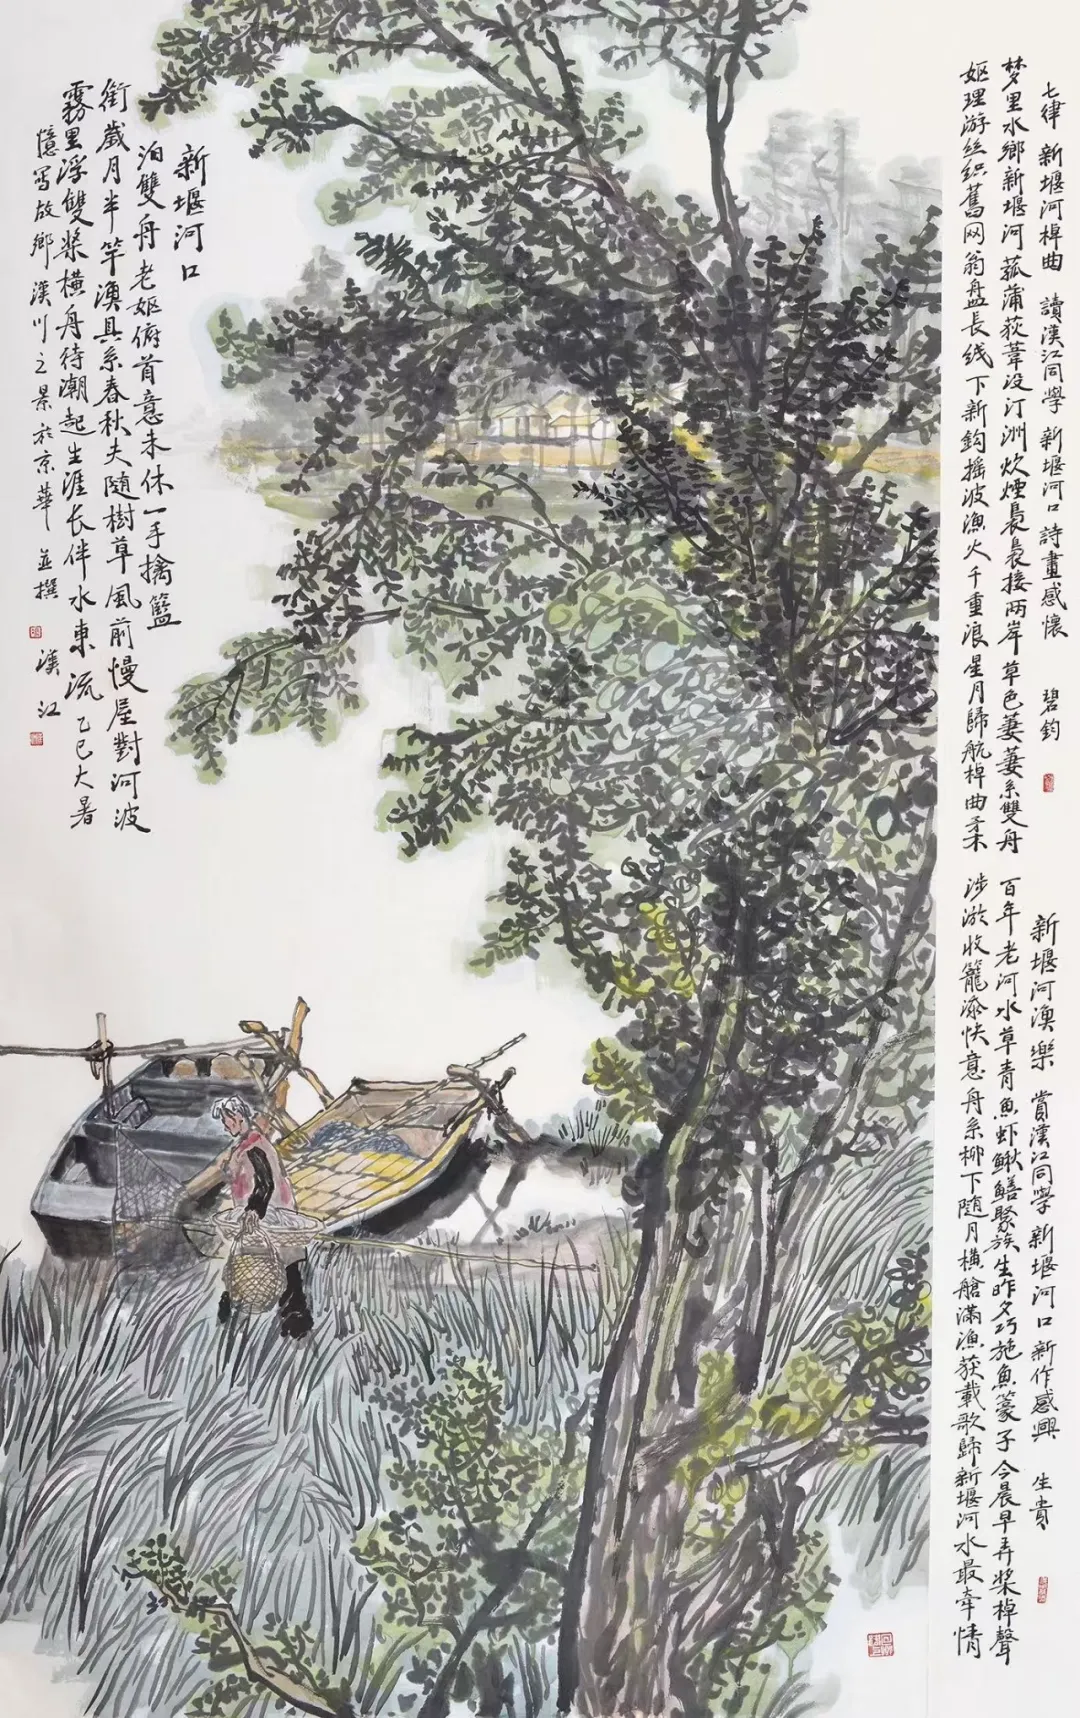 七律 新堰河棹曲 讀漢江同學新堰河口詩畫感懷 碧鈞
梦里水鄉新堰河菰蒲荻葦没汀洲炊煙裊裊接两岸草色萋萋系雙舟
嫗理游丝织舊网翁盘長线下新鈎摇波漁火千重浪星月歸航棹曲柔
新堰河漁樂 賞漢江同學新堰河口新作感興 生貴
百年老河水草青魚虾鳅鱔聚族生昨夕巧施魚子今晨早弄桨棹聲
涉淤收籠添快意舟系柳下随月横艙滿漁获載歌歸新堰河水最牵情
新堰河口
泊雙舟老嫗俯首意未休一手擒籃
銜歲月半竿漁具系春秋夫随樹草風前慢屋對河波
霧里浮雙桨橫舟待潮起生涯长伴水東流 乙巳大暑
憶寫故鄉漢川之景於京華並撰 漢江